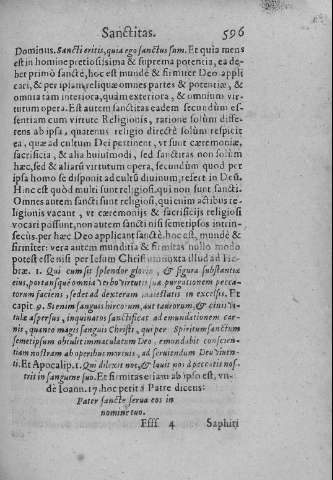 Sanctitas. 596
Dominus. Sancti eritis, quia ego sanctus sum. Et quia mens
est in homine pretiosissima & suprema potencia, ea de-
bet primò sanctè, hoc est mundè & firmiter Deo appli
cari, & per ipsam, reliquæ omnes partes & potentiæ, &
omnia tam interiora, quàm exteriora, & omnium vir-
tutum opera. Est autem sanctitas eadem secundùm es-
sentiam cum virtute Religionis, ratione solùm diffe-
rens ab ipsa, quatenus religio directè solùm respicit
ea, quæ ad cultum Dei pertinent, vt sunt cæremoniæ,
sacrificia, & alia huiusmodi, sed sanctitas non solùm
hæc, sed & aliarũ virtutum opera, secundùm quod per
ipsa homo se disponit ad cultũ diuinum, refert in Deũ.
Hinc est quòd multi sunt religiosi, qui non sunt sancti.
Omnes autem sancti sunt religiosi, qui enim actibus re-
ligionis vacant, vt cæremonijs & sacrificijs religiosi
vocari possunt, non autem sancti nisi semetipsos intrin-
secùs per hæc Deo applicant sanctè. hoc est, mundè &
firmiter: vera autem munditia & firmitas nullo modo
potest esse nisi per Iesum Christum iuxta illud ad Hę-
bræ. 1. Qui cum sit splendor gloriæ, & figura substantiæ
eius, portansque omnia verbo virtutis suæ purgationem pecca-
torum faciens, sedet ad dexteram maiestatis in excelsis. Et
capit. 9. Si enim sanguis hircorum, aut taurorum, & cinis vi-
tulæ aspersus, inquinatos sanctificat ad emundationem car-
nis, quanto magis sanguis Christi, qui per Spiritum sanctum
semetipsum obtulit immaculatum Deo, emundabit conscien-
tiam nostram ab operibus mortuis, ad seruiendum Deo viuen-
ti. Et Apocalip. 1. Qui dilexit nos, & lauit nos à peccatis nos-
tris in sanguine suo. Et firmitas etiam ab ipso est, vn-
de Ioann. 17. hoc petit à Patre dicens:
Pater sancte serua eos in
nomine tuo.
Ffff 4 Saphiri